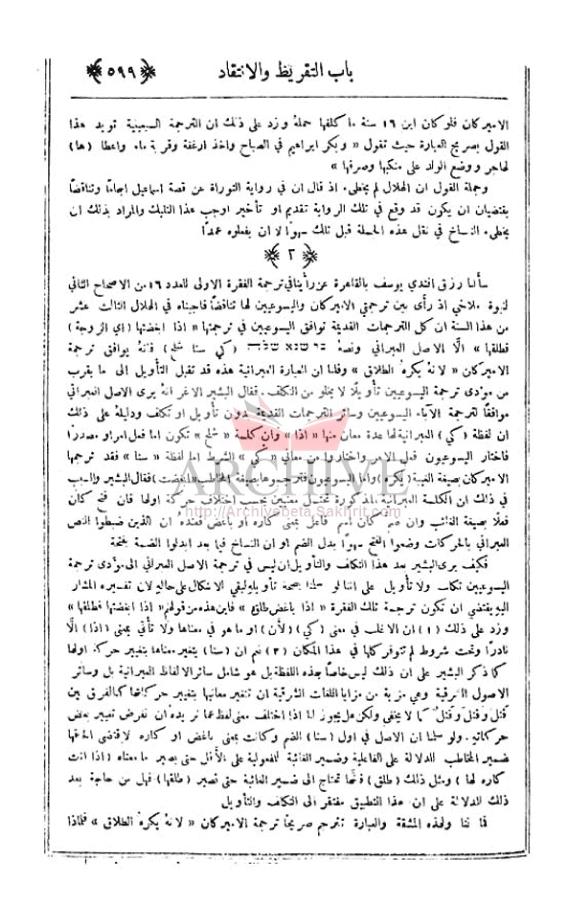 باب التقريظ والانتقاد ﴿ ٥٩٩ ﴾
الاميركان فلو كان ابن ١٦ سنة ما كلفها حملهُ وزد على ذلك ان الترجمة السبعينية تويد هذا
القول بصريح العبارة حيث تقول « وبكر ابراهيم في الصباح واخذ ارغفة وقربة ماء واعطا (ها)
لهاجر ووضع الولد على منكبها وصرفها »
وجملة القول ان الهلال لم يخطىء اذ قال ان في رواية التوراة عن قصة اسماعيل ابهامًا وتناقضًا
يقتضيان ان يكون قد وقع في تلك الرواية تقديم او تأخير اوجب هذا التلبك والمراد بذلك ان
يخطىء النساخ في نقل هذه الجملة قبل تلك سهوًا لا ان يفعلوه عمدًا
﴿ ٢ ﴾
سألنا رزق افندي يوسف بالقاهرة عن رأينا في ترجمة الفقرة الاولى للعدد ١٦ من الاصحاح الثاني
لنبوة ملاخي اذ رأى بين ترجمتي الاميركان واليسوعيين لها تناقضًا فاجبناه في الهلال الثالث عشر
من هذا السنة ان كل الترجمات القديمة توافق اليسوعيين في ترجمتها « اذا ابغضتها (اي الزوجة)
فطلقها » الَّا الاصل العبراني ونصهُ כי שנא שלח (كي سنا شلح) فانهُ يوافق ترجمة
الاميركان « لانهُ يكره الطلاق » وقلنا ان العبارة العبرانية هذه قد تقبل التأويل الى ما يقرب
من مؤدى ترجمة اليسوعيين تأويلًا لا يخلو من التكلف. فقال البشير الاغر انه يرى الاصل العبراني
موافقًا لترجمة الآباء اليسوعيين وسائر الترجمات القديمة بدون تأويل او تكلف ودليلهُ على ذلك
ان لفظة (كي) العبرانية لها عدة معان منها « اذا » وان كلمة « شلح » تكون اما فعل امر او مصدرًا
فاختار اليسوعيون فعل الامر واختاروا من معاني « كي » الشرط اما لفظة « سنا » فقد ترجمها
الاميركان بصيغة الغيبة (يكره) واما اليسوعيون فترجموها بصيغة المخاطب «ابغضت) فقال البشير والسبب
في ذلك ان الكلمة العبرانية المذكورة تحتمل معنيين بحسب اختلاف حركة اولها فان فتح كان
فعلًا بصيغة الغائب وان ضم كان اسم فاعل بمعنى كاره او باغض فعنده ان الذين ضبطوا النص
العبراني بالحركات وضعوا الفتح سهوًا بدل الضم او ان النساخ فيما بعد ابدلوا الضمة بفتحة
فكيف يرى البشير بعد هذا التكلف والتأويل ان ليس في ترجمة الاصل العبراني الى مؤدى ترجمة
اليسوعيين تكلف ولا تأويل على اننا لو سلمنا بصحة تأويله لبقي الاشكال على حاله لان تفسيره المشار
اليه يقتضي ان تكون ترجمة تلك الفقرة « اذا باغض طلق » فاين هذه من قولهم « اذا ابغضتها فطلقها »
وزد على ذلك (١) ان الاغلب في معنى (كي) (لأن) او ما هو في معناها ولا تأتي بمعنى (اذا) الَّا
نادرًا وتحت شروط لم تتوفر كلها في هذا المكان (٢) نعم ان (سنا) يتغير معناها بتغيير حركة اولها
كما ذكر البشير على ان ذلك ليس خاصًا بهذه اللفظة بل هو شامل سائر الالفاظ العبرانية بل وسائر
الاصول الشرقية وهي مزية من مزايا اللغات الشرقية ان تتغير معانيها بتغيير حركاتها كالفرق بين
قَتَلَ وقَتْل وقُتِلَ كما لا يخفى ولكن هل يجوز لنا اذا اختلف معنى لفظ عما نريده ان نفرض تغيير بعض
حركاته. ولو سلمنا ان الاصل في اول (سنا) الضم وكانت بمعنى باغض او كاره لاقتضى الحاقها
ضمير المخاطب للدلالة على الفاعلية وضمير الغائبة للمفعولية على الأقل حتى يصير ما معناه (اذا انت
كاره لها) ومثل ذلك (طلق) فانها تحتاج الى ضمير الغائبة حتى تصير (طلقها) فهل من حاجة بعد
ذلك للدلالة على ان هذا التطبيق مفتقر الى التكلف والتأويل
فما لنا ولهذه المشقة والعبارة تترجم صريحًا ترجمة الاميركان « لانهُ يكره الطلاق » فلماذا
ARCHIVE
http://Archivebeta.Sakhrit.com